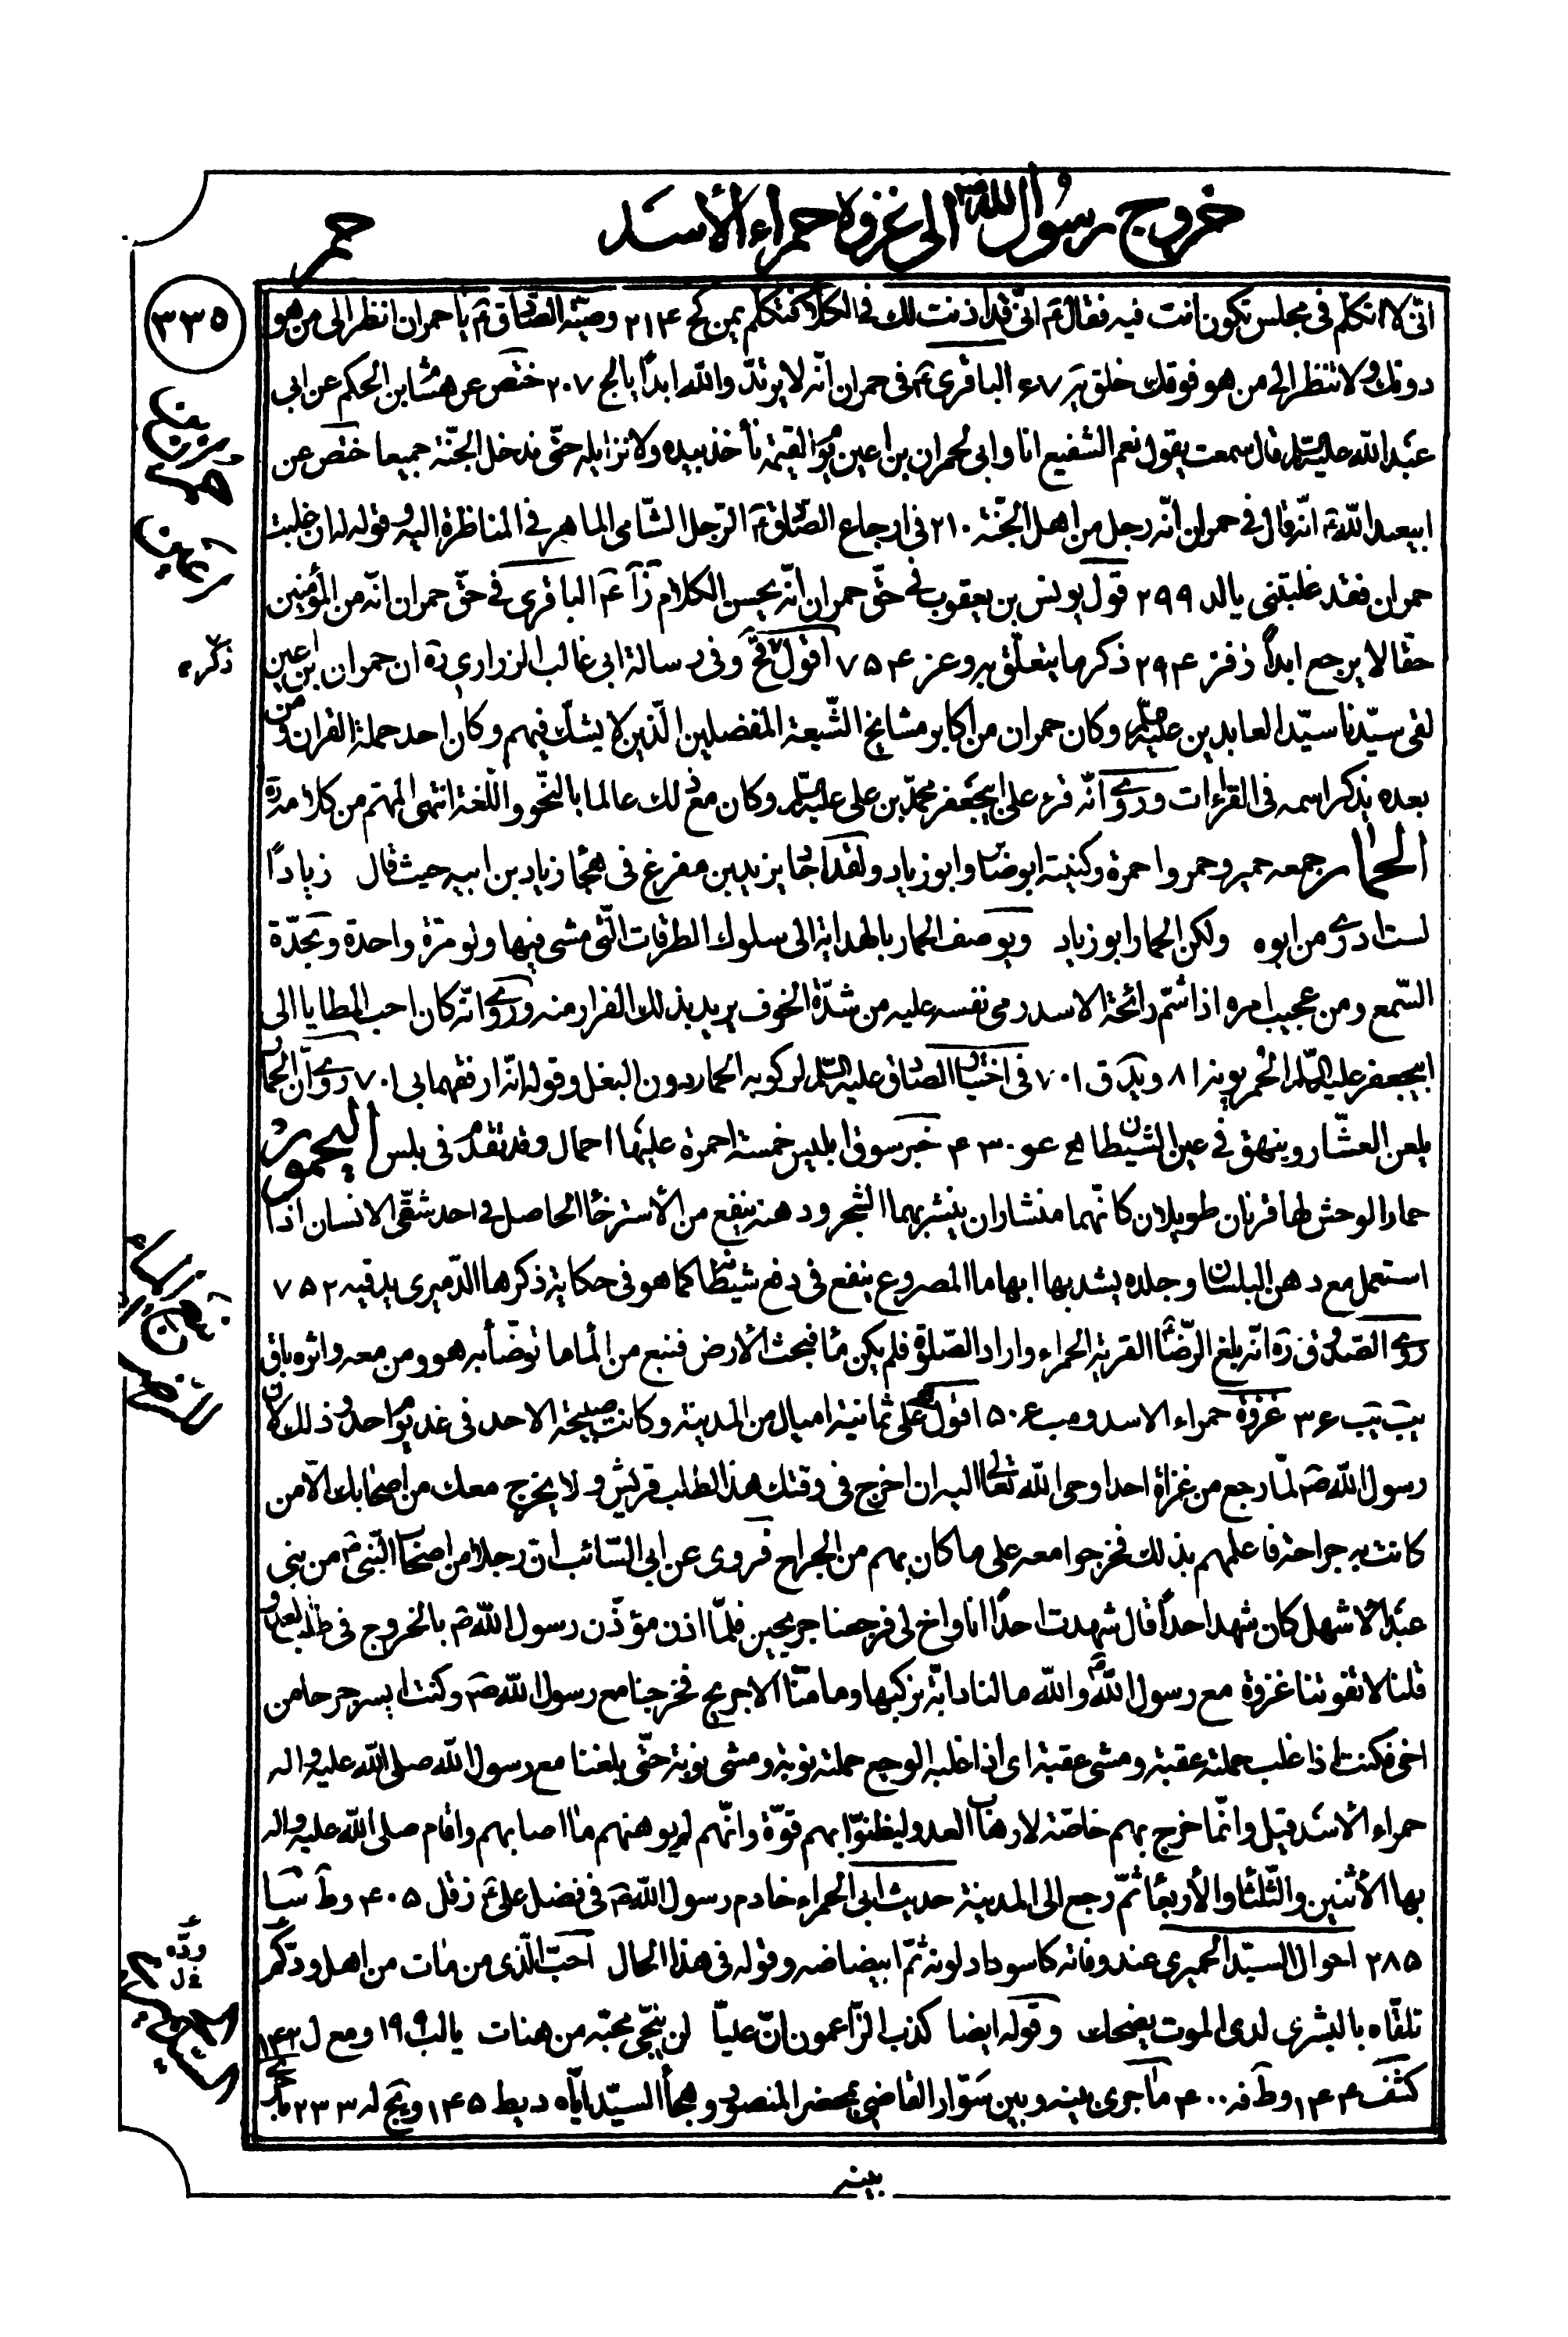 خروج رسول الله ص الى غزوة حمراء الأسد
حمر
٣٣٥
انّى لا اتكلّم فى مجلس تكون انت فيه فقال ع انّى قد اذنت لك فى الكلام فتكلّم يمن كج ٢١٤ وصيّة الصادق ع يا حمران انظر الى من هو
دونك ولا تنظر الى من هو فوقك خلق يَه ٦٧ الباقرى ع فى حمران انّه لا يرتدّ والله ابدًا يا لج ٢٠٧ ختص عن هشام بن الحكم عن ابى
عبد الله عليه السلم قال سمعت يقول نعم الشفيع انا وابى لحمران بن اعين يوم القيمة نأخذ بيده ولا نزايله حتّى ندخل الجنّة جميعا ختص عن
ابيعبد الله ع انّه قال فى حمران انّه رجل من اهل الجنّة ٢١٠ فى ارجاع الصادق ع الرّجل الشّامى الماهر فى المناظرة اليه وقوله له ان غلبت
حمران فقد غلبتنى يا لد ٢٩٩ قول يونس بن يعقوب فى حقّ حمران انّه يحسن الكلام زآ ع الباقرى فى حقّ حمران انّه من المؤمنين
حقّا لا يرجع ابدًا ذفز ٢٩٤ ذكر ما يتعلّق به وعز ٧٥٤ اقول قح وفى رسالة ابى غالب الزرارى ره ان حمران بن اعين
لقى سيّدنا سيّد العابدين عليه السلم وكان حمران من اكابر مشايخ الشّيعة المفضلين الّذين لا يشكّ فيهم وكان احد حملة القرآن ومن
بعده يذكر اسمه فى القراءات وروى انّه قرء على ابيجعفر محمّد بن على عليه السلم وكان مع ذلك عالما بالنّحو واللّغة انتهى المهمّ من كلامه ره
الحمار جمعه حمير وحمر واحمرة وكنيته ابو صابر وابو زياد ولقد اجاد يزيد بن مفرغ فى هجاء زياد بن ابيه حيث قال زيادًا
لست ادرى من ابوه ولكن الحمار ابو زياد ويوصف الحمار بالهداية الى سلوك الطرقات الّتى مشى فيها ولو مرّة واحدة وبحدّة
السّمع ومن عجيب امره اذا شمّ رائحة الاسد رمى نفسه عليه من شدّة الخوف يريد بذلك الفرار منه وروى انّه كان احب المطايا الى
ابيجعفر عليه السلم الحمر يو يز ٨١ ويد ق ٧٠١ فى اختيار الصادق عليه السلم لركوبه الحمار دون البغل وقوله انّه ارفقهما بى ٧٠١ روى انّ الحمار
يلعن العشّار وينهق فى عين الشيطان مح عو ٤٣٠ خبر سوق ابليس خمسة احمرة عليها احمال وقد تقدم فى بلس اليحمور
حمار الوحش لها قرنان طويلان كانّهما منشاران ينشر بهما الشجر ودهنه ينفع من الأسترخاء الحاصل فى احد شقّى الانسان اذا
استعمل مع دهن البلسان وجلده يشد بها ابهاما المصروع ينفع فى دفع شيطانه كما هو فى حكاية ذكرها الدّميرى يد قيه ٧٥٢
روى الصدوق ره انّه بلغ الرّضا ع القرية الحمراء واراد الصّلوة فلم يكن ماء فبحث الأرض فنبع من الماء ما توضّأ به هو ومن معه واثره باق
يب يب ٣٦ غزوة حمراء الاسد ومب ٥٠٦ اقول هى على ثمانية اميال من المدينة وكانت صبيحة الاحد فى غد يوم احد وذلك لان
رسول الله ص لمّا رجع من غزاة احد اوحى الله تعالى اليه ان اخرج فى وقتك هذا لطلب قريش ولا يخرج معك من اصحابك الّا من
كانت به جراحة فاعلمهم بذلك فخرجوا معه على ما كان بهم من الجراح فروى عن ابى السّائب انّ رجلا من اصحاب النّبى ص من بنى
عبد الأشهل كان شهد احدًا قال شهدت احدًا انا واخ لى فرجعنا جريحين فلمّا اذن مؤذّن رسول الله ص بالخروج فى طلب العدو
قلنا لا تفوتنا غزوة مع رسول الله ص والله ما لنا دابّة نركبها وما منّا الا جريح فخرجنا مع رسول الله ص وكنت ايسر جرحا من
اخى فكنت اذا غلب حملته عقبة ومشى عقبة اى اذا غلبه الوجع حملته نوبة ومشى نوبة حتّى بلغنا مع رسول الله صلى الله عليه واله
حمراء الأسد قيل وانّما خرج بهم خاصّة لارهاب العدو ليظنّوا بهم قوّة وانّهم لم يوهنهم ما اصابهم واقام صلى الله عليه واله
بها الأثنين والثّلثاء والأربعاء ثمّ رجع الى المدينة حديث ابى الحمراء خادم رسول الله ص فى فضل على ع ز قل ٤٠٥ وط سا
٢٨٥ احوال السيّد الحميرى عند وفاته كاسوداد لونه ثمّ ابيضاضه وقوله فى هذا الحال احبّ الّذى من مات من اهل ودّكم
تلقّاه بالبشرى لدى الموت يضحك وقوله ايضا كذب الزّاعمون انّ عليّا لن ينجّى محبّه من هنات يا لب ١٩٩ ومع ل ١٤٢
كشف ١٤٤ وط فه ٤٠٠ ما جرى بينه وبين سوّار القاضى بمحضر المنصور وهجاء السيّد ايّاه ديط ١٤٥ ويج له ٢٣٣
بينه
ذكره
ودّه
خ ل
السيد الحميرى